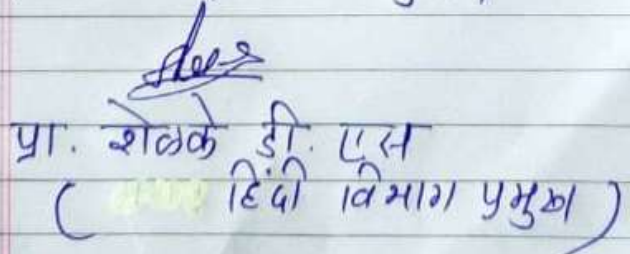 प्रा. शेळके डी. एस
( हिंदी विभाग प्रमुख )